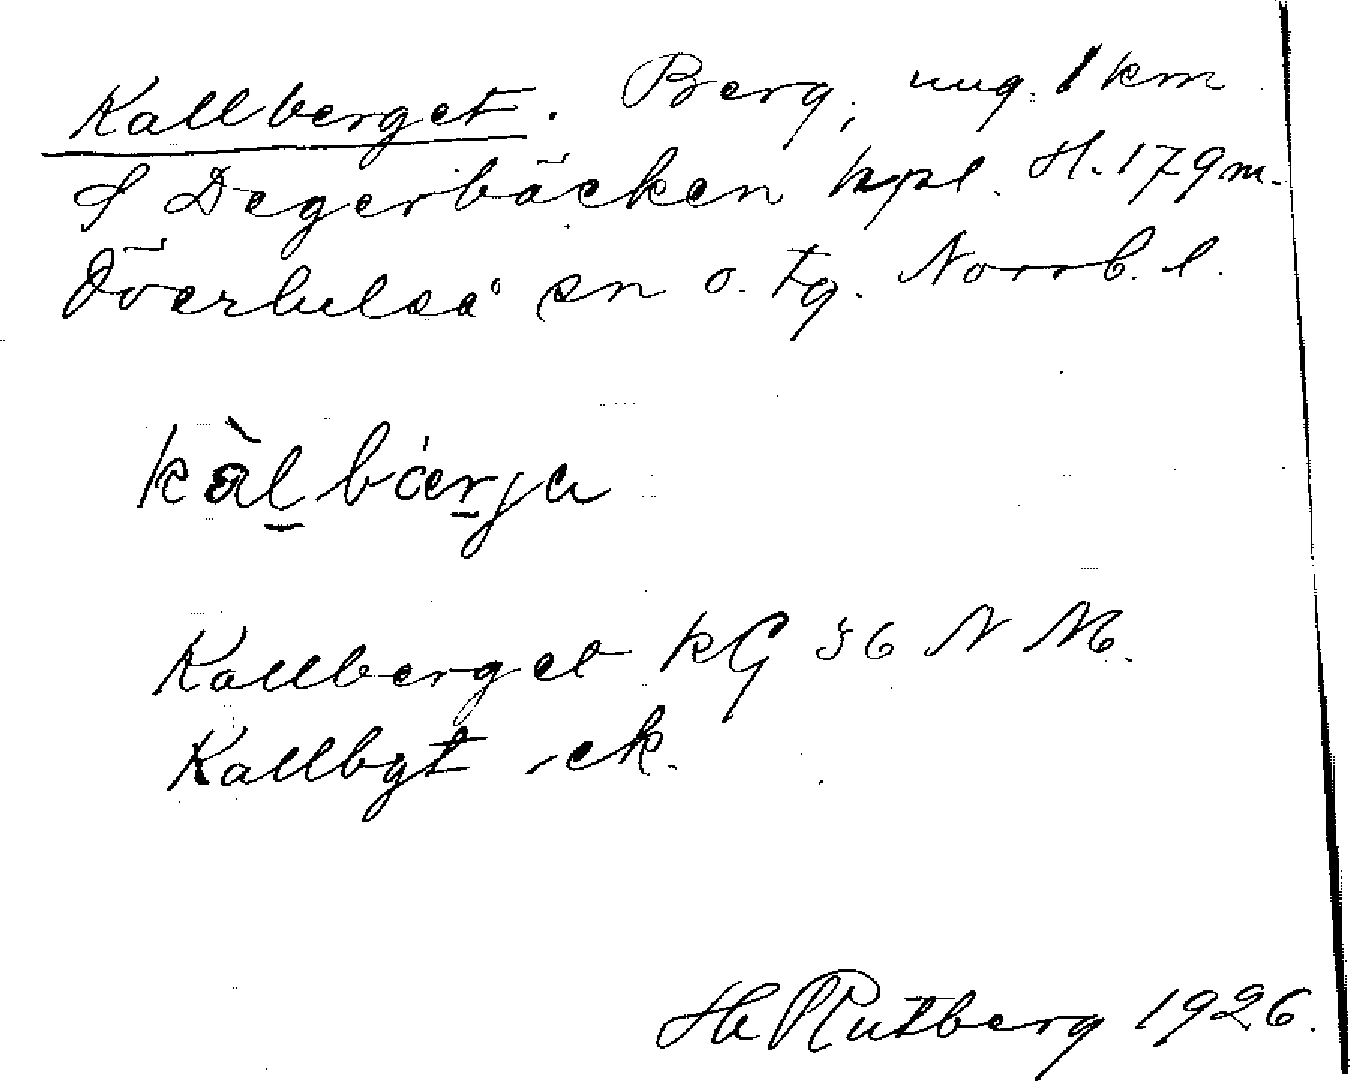 Kallberget. Berg, ung. 1 km
S Degerbäcken hpl. H. 179 m.
Överluleå sn o. tg. Norrb. l.
kàl bárja
Kallberget kG 36 N M.
Kallbgt ek.
H Rutberg 1926.